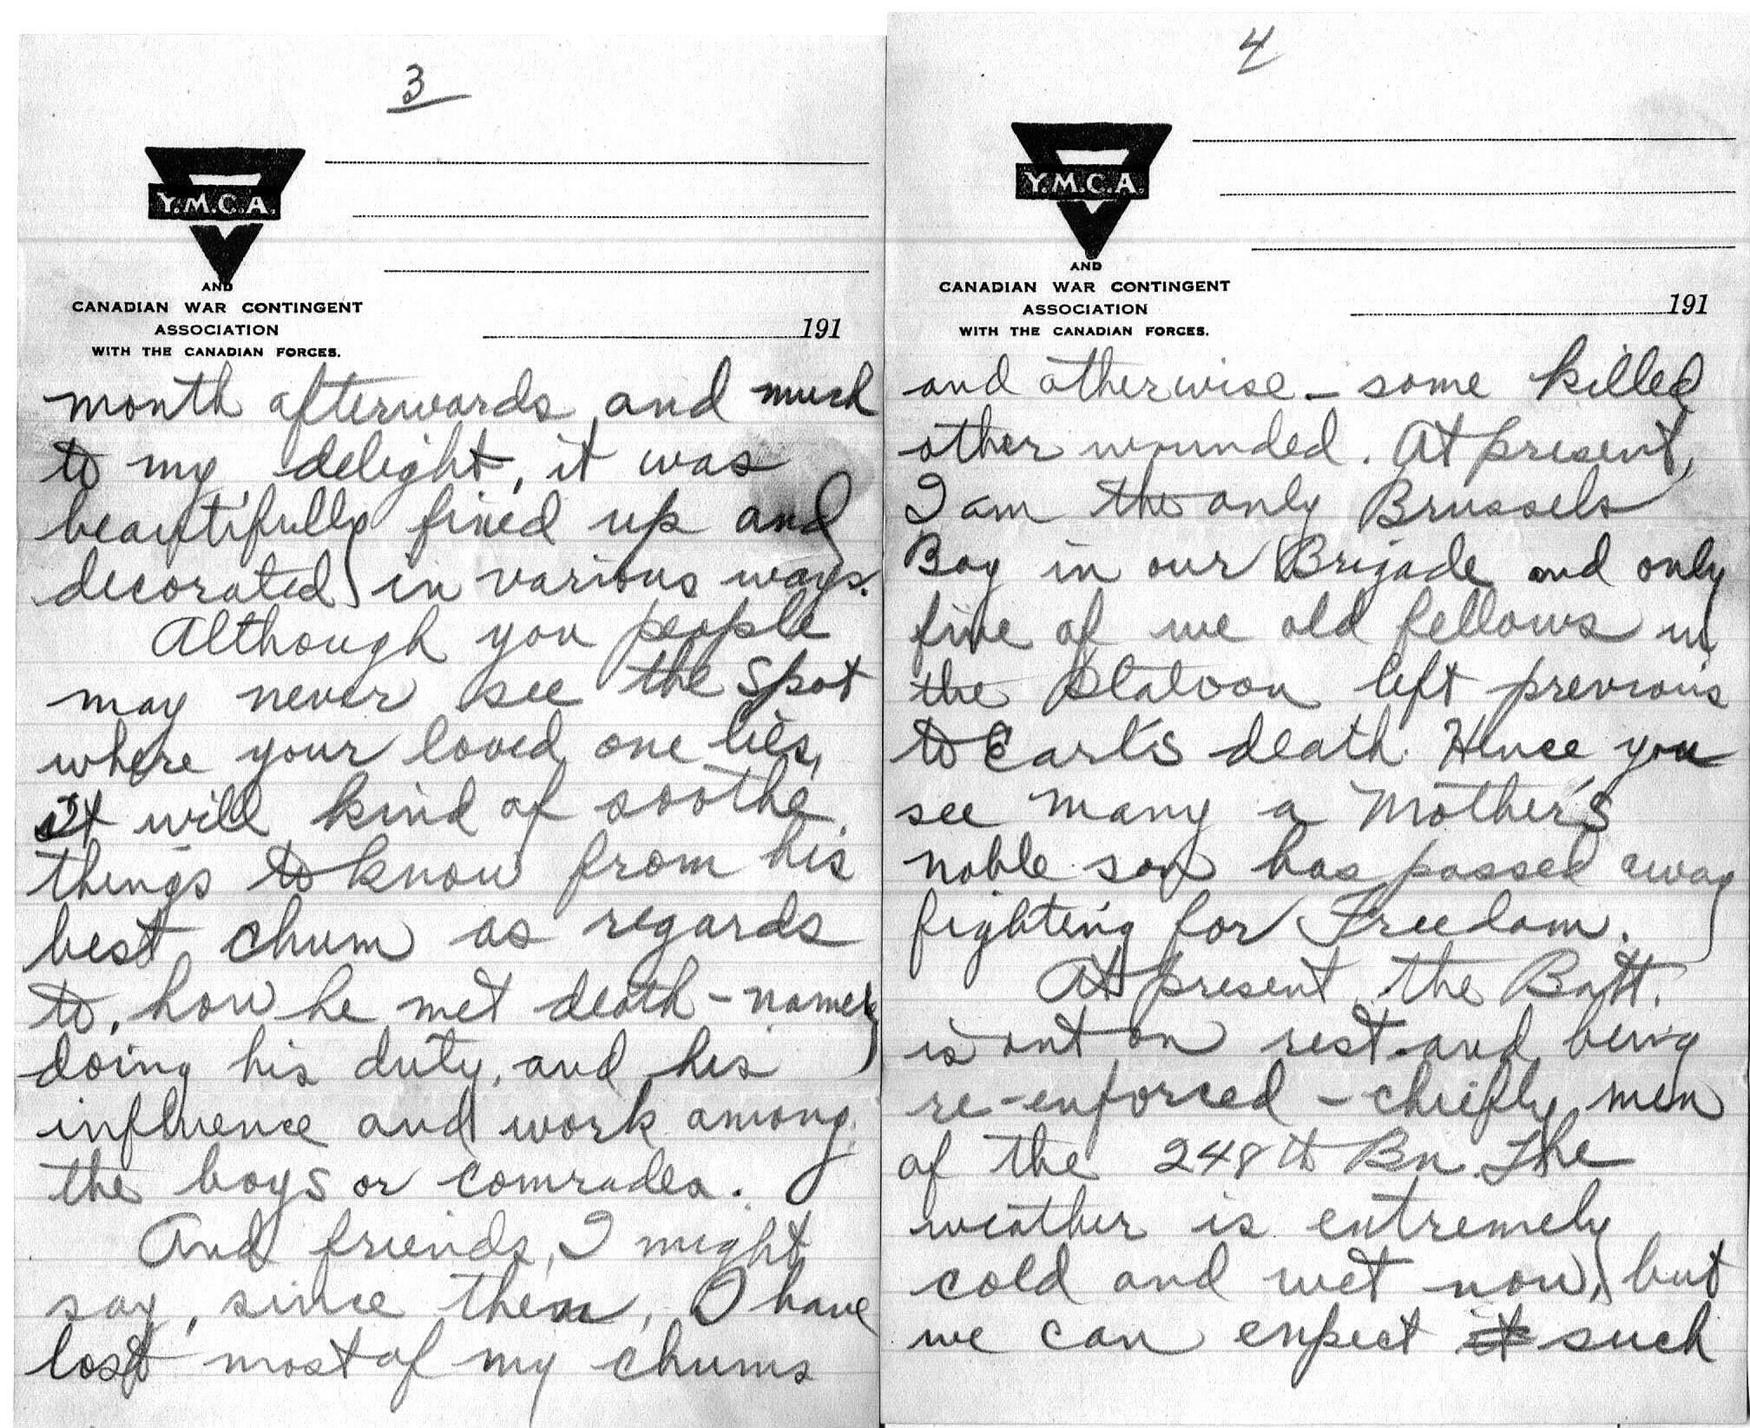 3
Y.M.C.A.
AND
CANADIAN WAR CONTINGENT
ASSOCIATION
WITH THE CANADIAN FORCES.
191
month afterwards and much
to my delight, it was
beautifully fixed up and
decorated in various ways.
Although you people
may never see the spot
where your loved one lies,
it will kind of soothe
things to know from his
best chum as regards
to, how he met death - namely
doing his duty, and his
influence and work among
the boys or comrades.
And friends, I might
say, since then, I have
lost most of my chums
4
Y.M.C.A.
AND
CANADIAN WAR CONTINGENT
ASSOCIATION
WITH THE CANADIAN FORCES.
191
and otherwise - some killed
other wounded. At present,
I am the only Brussels
Boy in our Brigade and only
five of we old fellows in
the Platoon left previous
to Earl's death. Hence you
see many a Mother's
noble son has passed away
fighting for Freedom.
At present the Batt.
is out on rest and being
re-enforced - chiefly men
of the 248th Bn. The
weather is extremely
cold and wet now, but
we can expect it such